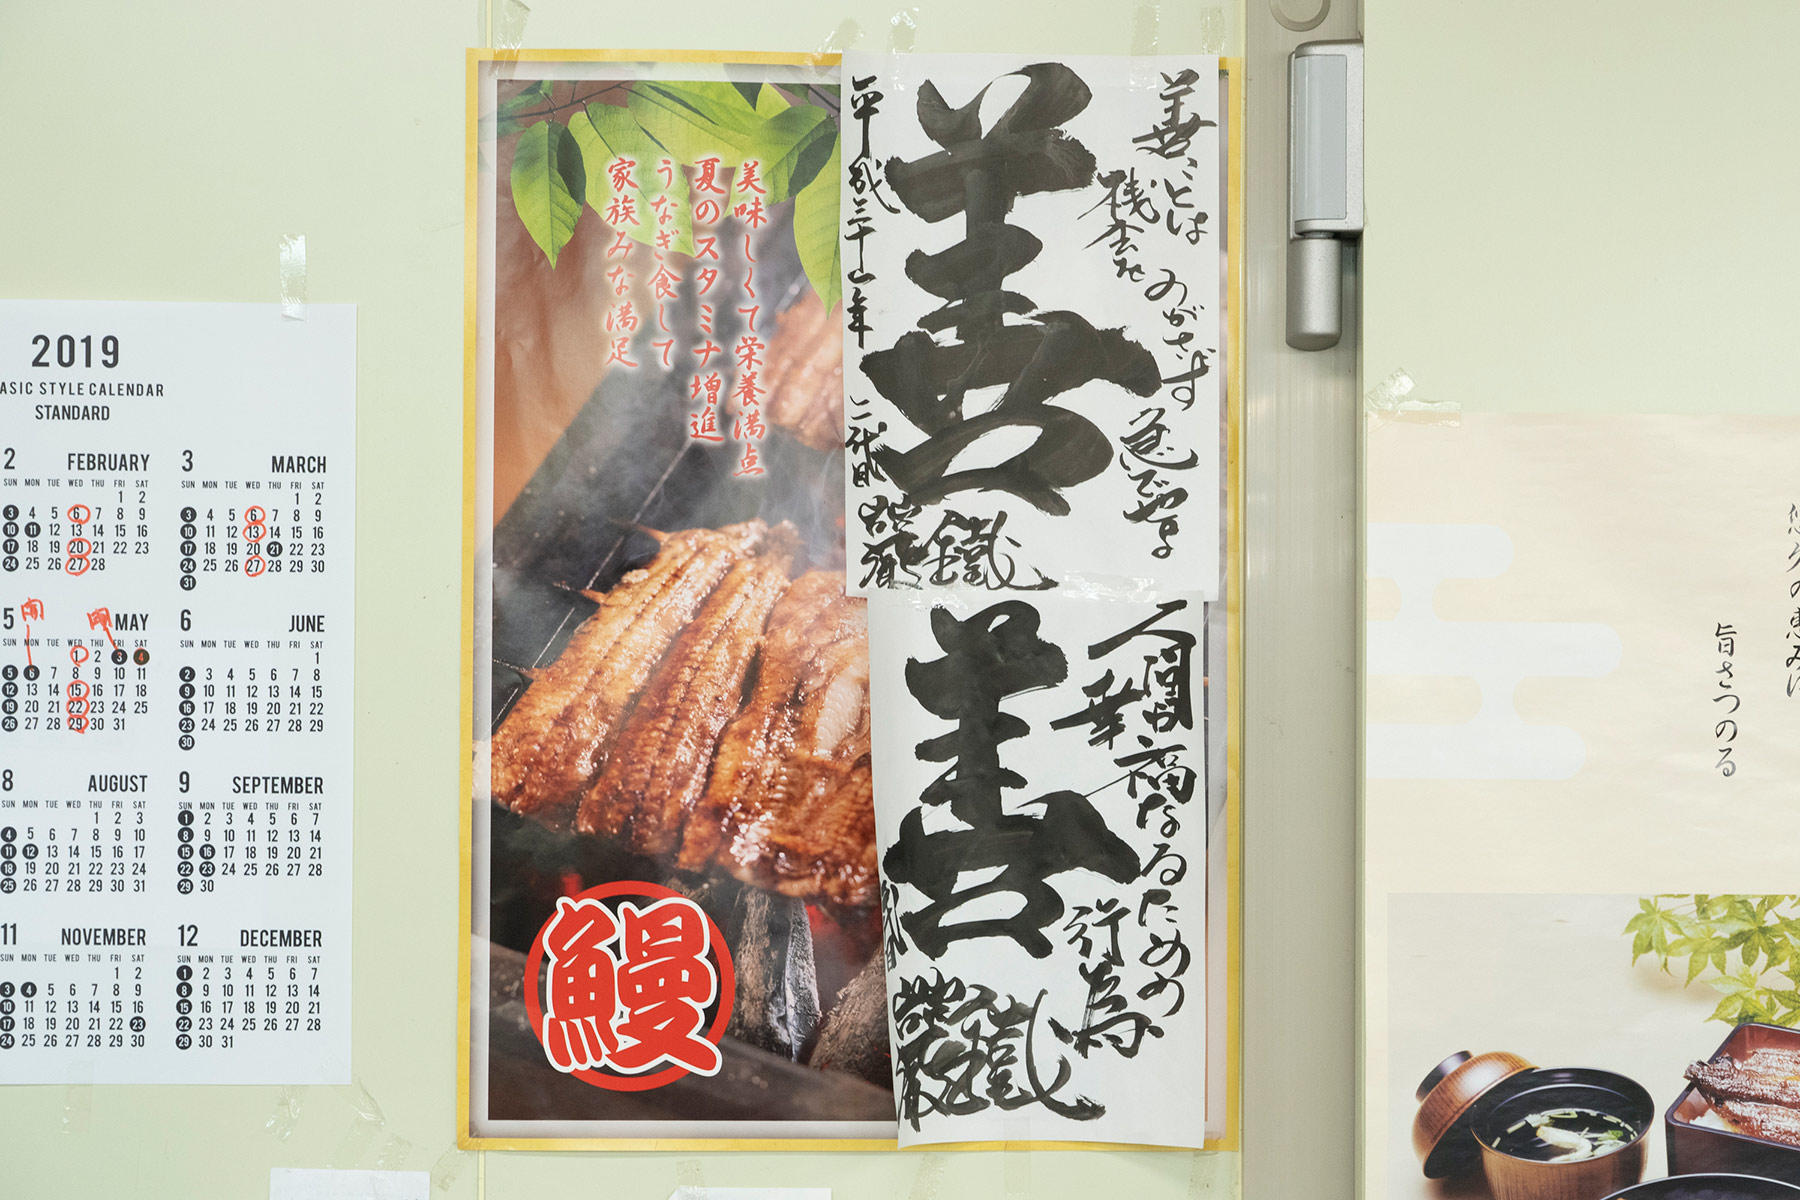 2019
ASIC STYLE CALENDAR
STANDARD
2 FEBRUARY
SUN MON TUE WED THU FRI SAT
1 2
3 4 5 6 7 8 9
10 11 12 13 14 15 16
17 18 19 20 21 22 23
24 25 26 27 28
3 MARCH
SUN MON TUE WED THU FRI SAT
1 2
3 4 5 6 7 8 9
10 11 12 13 14 15 16
17 18 19 20 21 22 23
24 25 26 27 28 29 30
31
5 MAY
SUN MON TUE WED THU FRI SAT
1 2 3 4
5 6 7 8 9 10 11
12 13 14 15 16 17 18
19 20 21 22 23 24 25
26 27 28 29 30 31
6 JUNE
SUN MON TUE WED THU FRI SAT
1
2 3 4 5 6 7 8
9 10 11 12 13 14 15
16 17 18 19 20 21 22
23 24 25 26 27 28 29
30
8 AUGUST
SUN MON TUE WED THU FRI SAT
1 2 3
4 5 6 7 8 9 10
11 12 13 14 15 16 17
18 19 20 21 22 23 24
25 26 27 28 29 30 31
9 SEPTEMBER
SUN MON TUE WED THU FRI SAT
1 2 3 4 5 6 7
8 9 10 11 12 13 14
15 16 17 18 19 20 21
22 23 24 25 26 27 28
29 30
11 NOVEMBER
SUN MON TUE WED THU FRI SAT
1 2
3 4 5 6 7 8 9
10 11 12 13 14 15 16
17 18 19 20 21 22 23
24 25 26 27 28 29 30
12 DECEMBER
SUN MON TUE WED THU FRI SAT
1 2 3 4 5 6 7
8 9 10 11 12 13 14
15 16 17 18 19 20 21
22 23 24 25 26 27 28
29 30 31
美味しくて栄養満点
夏のスタミナ増進
うなぎ食して
家族みな満足
鰻
善
善ことは
機会を
のがさず
急でやる
平成三十一年
二代目
巌鐵
善
人間が
幸福なるための
行為
巌鐵
悠久の恵みに
旨さつのる